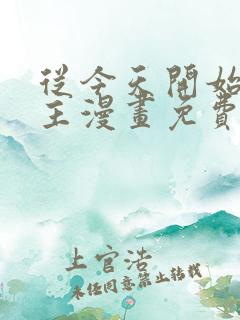 從今天開始
王漫畫免費
上官浩
未經同意禁止轉載